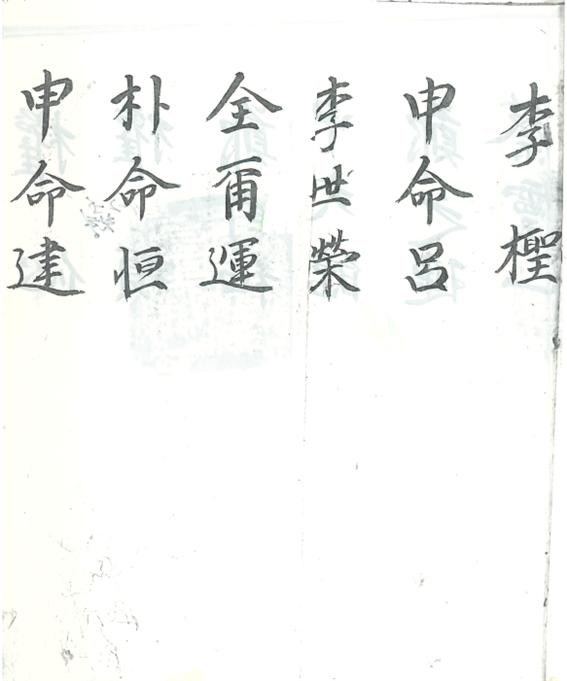 李檉
申命呂
李世榮
全爾運
朴命恒
申命建